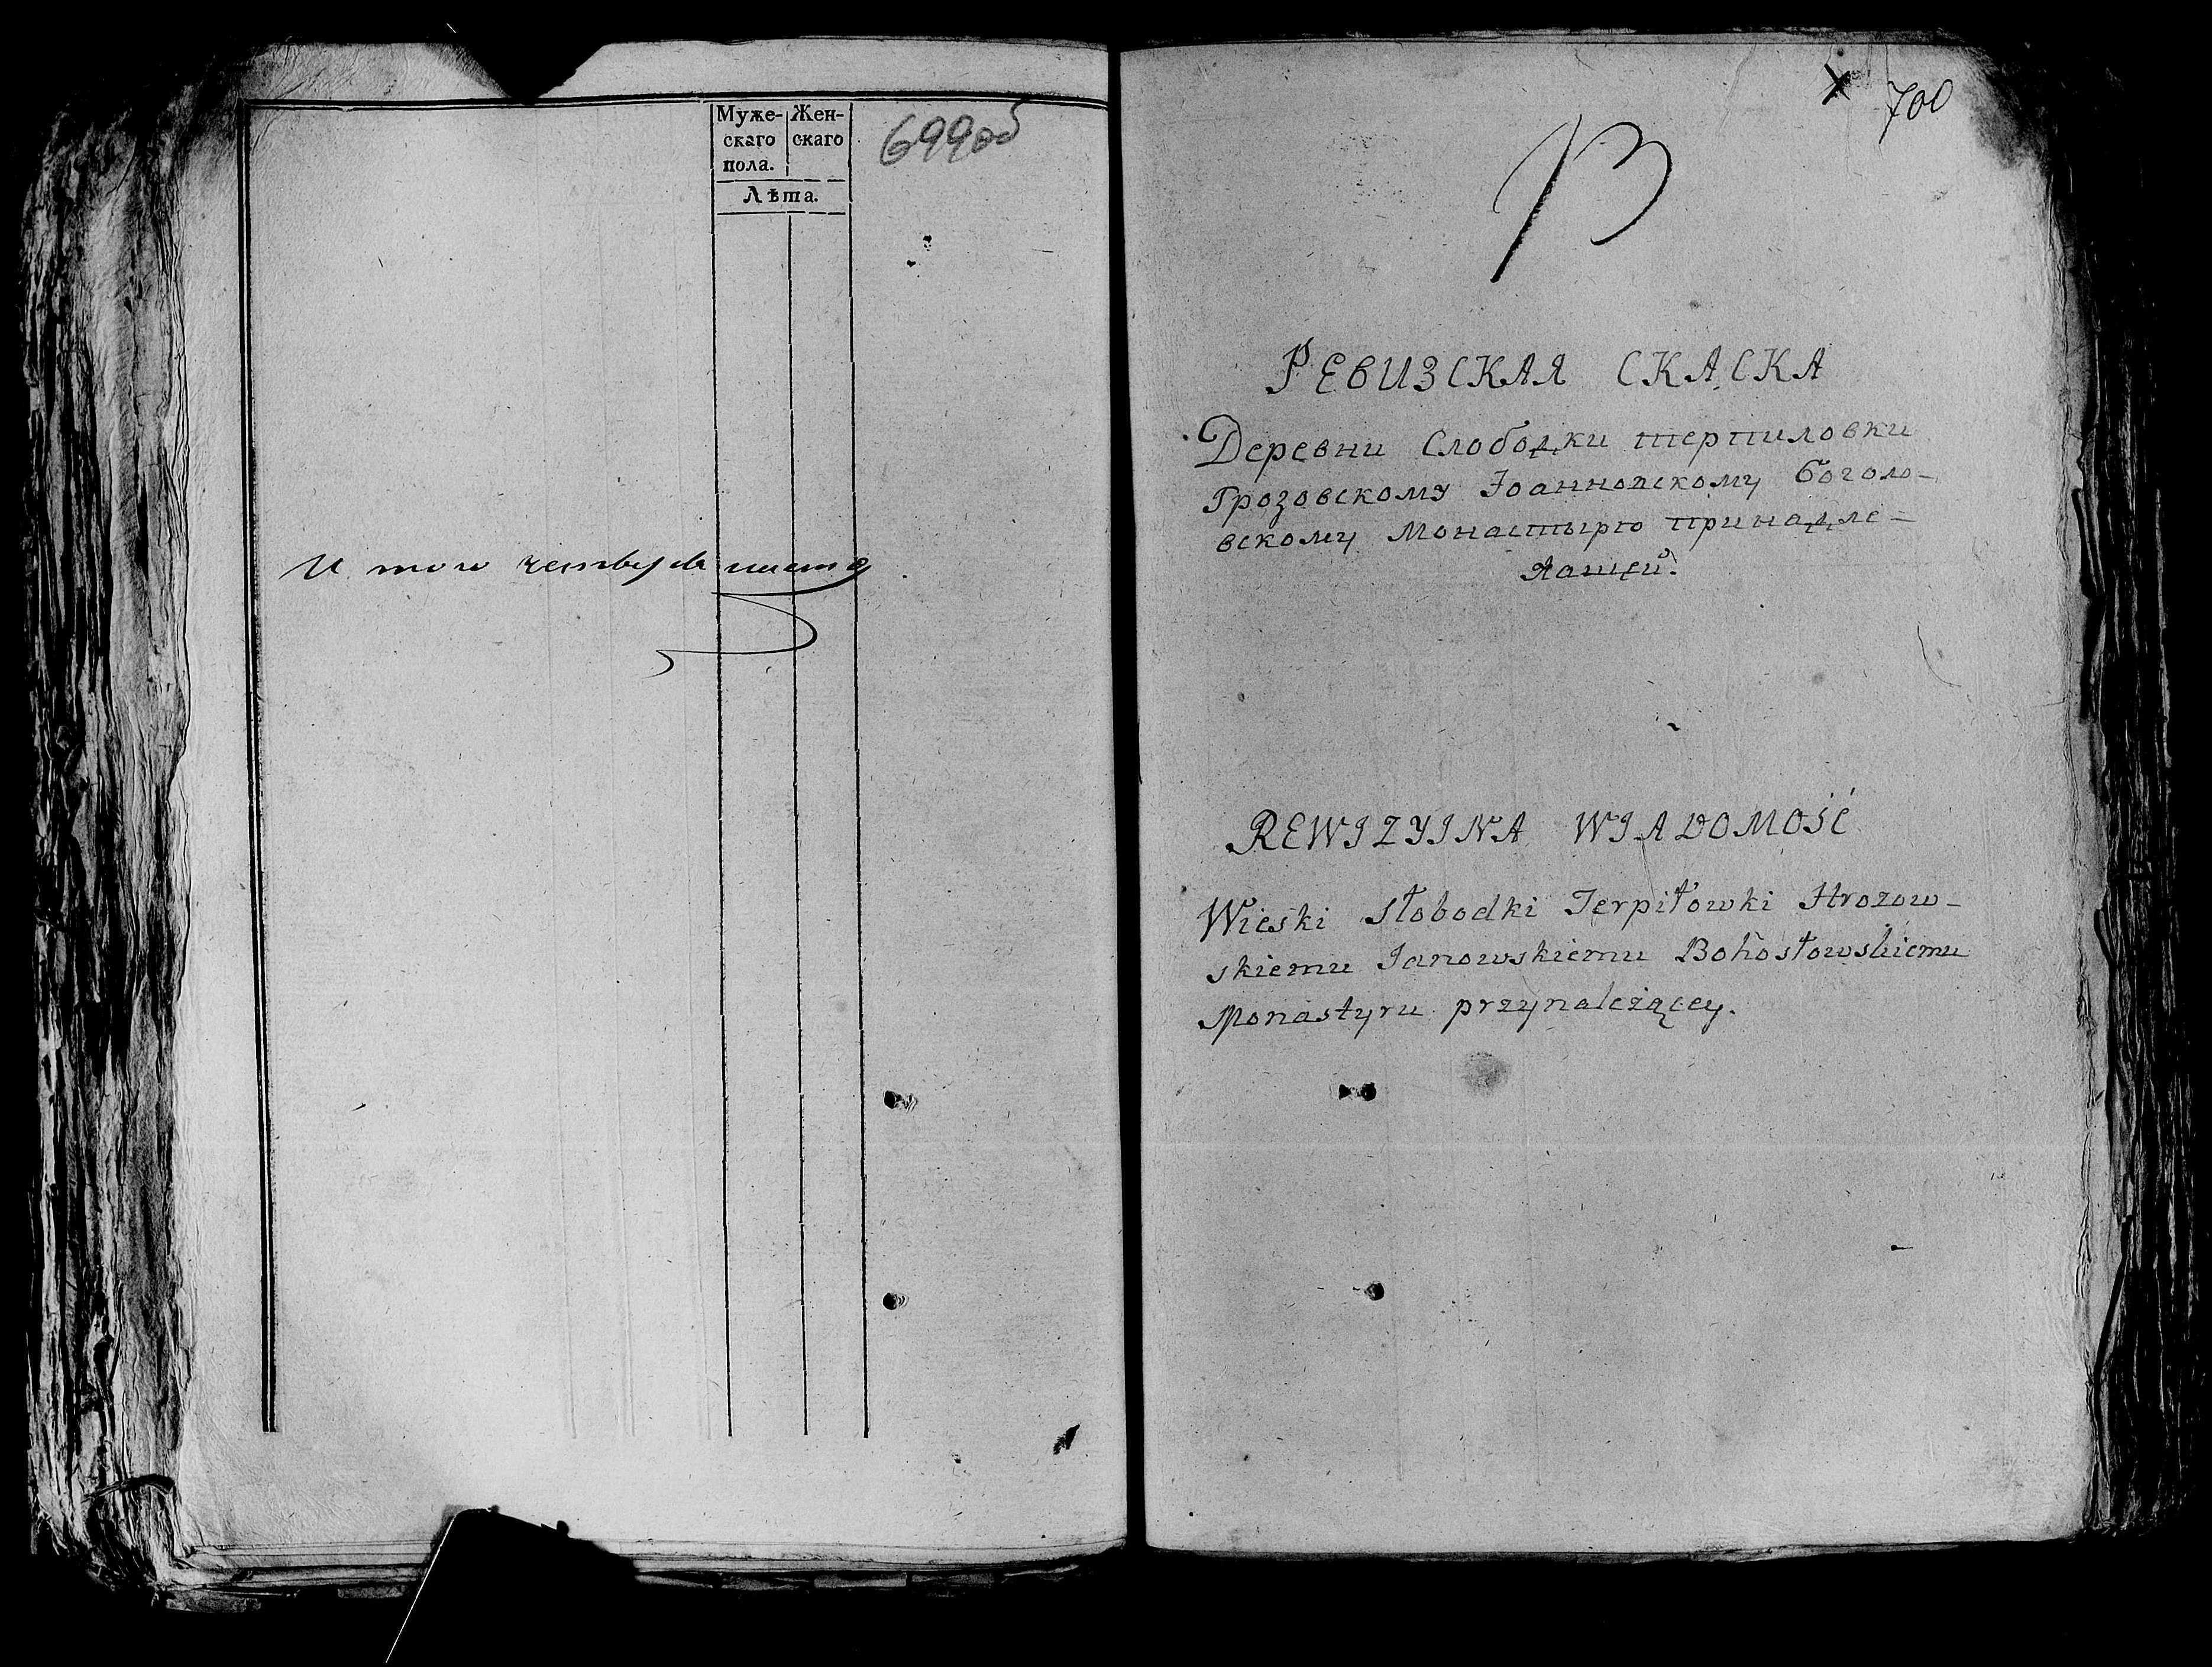 Муже- Жен-
скаго скаго
пола.
Лѣта.
699об
И того четыре листа
700
13
РЕВИЗСКАЯ СКАСКА
Деревни Слободки терпиловки
Грозовскому Іоанновскому боголо-
вскому Монастырю принадле-
жащей.
REWIZYINA WIADOMOŚĆ
Wieski Słobodki Terpiłowki Hrozow-
skiemu Janowskiemu Bohosłowskiemu
Monastyru przynależącey.